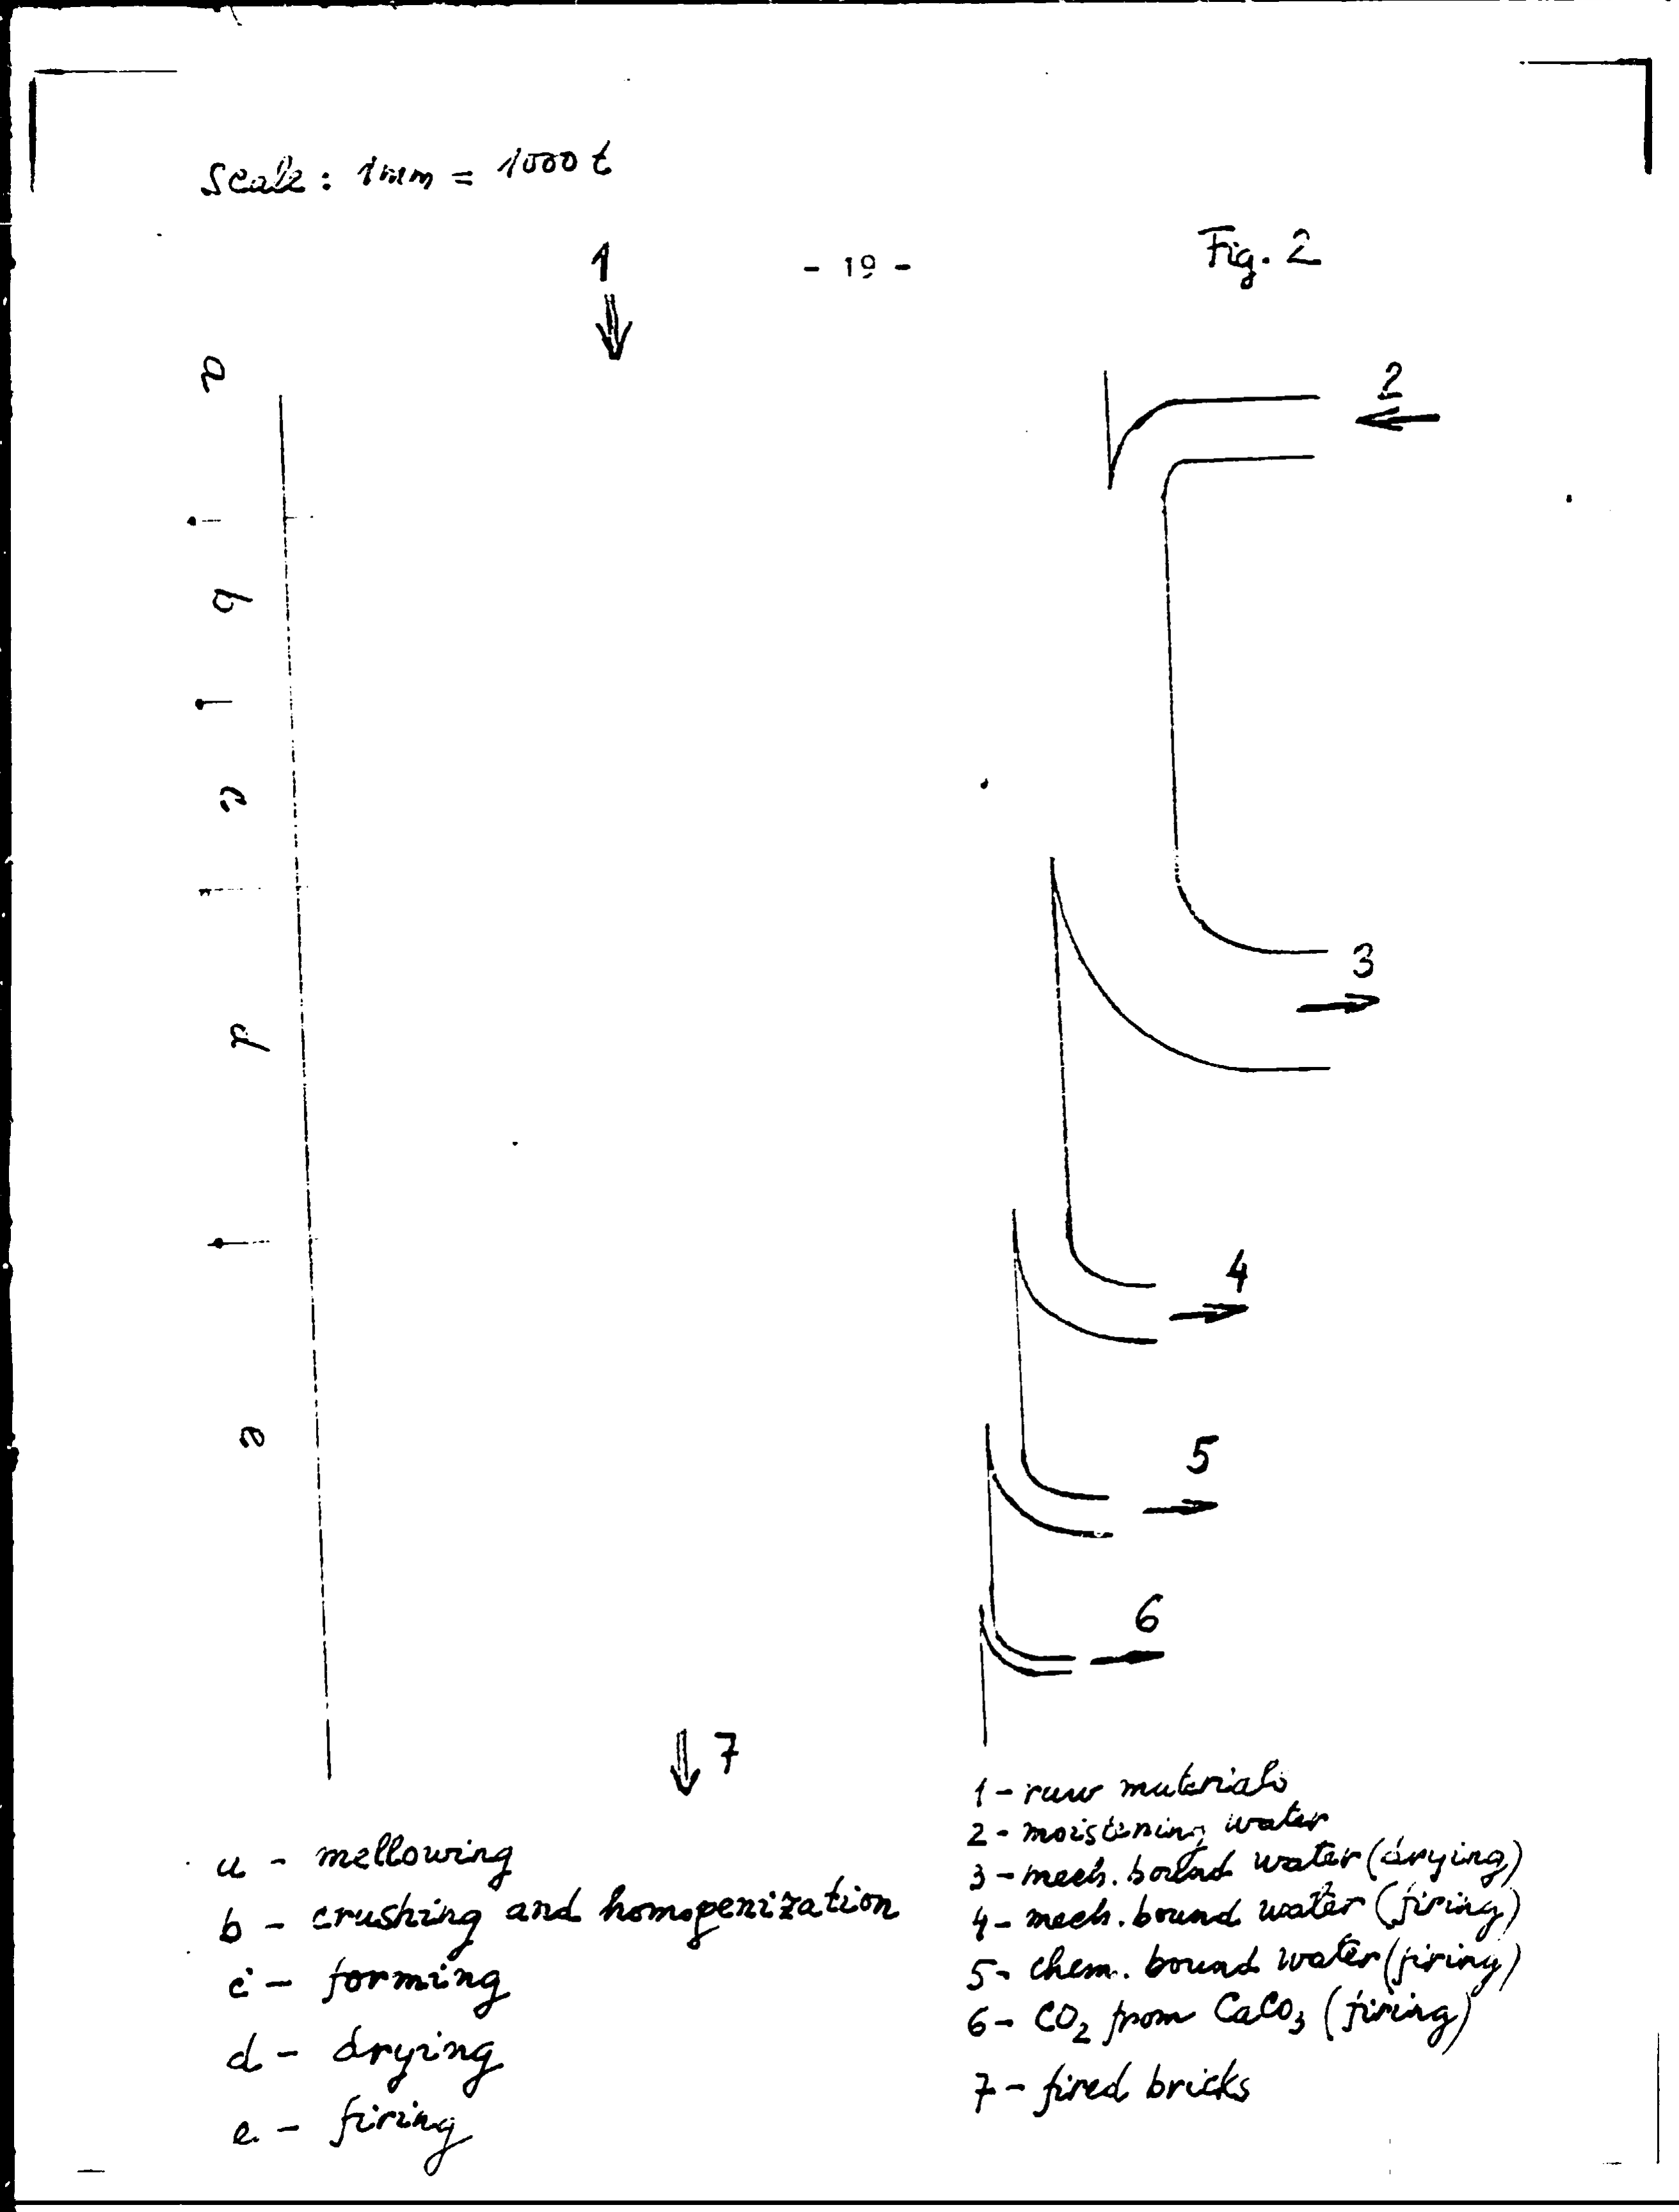 Scale: 1mm = 1000 t
1
- 19 -
Fig. 2
a
2
b
c
3
d
4
e
5
6
7
a - mellowing
b - crushing and homogenization
c - forming
d - drying
e - firing
1 - raw materials
2 - moistening water
3 - mech. bound water (drying)
4 - mech. bound water (firing)
5 - chem. bound water (firing)
6 - CO2 from CaCO3 (firing)
7 - fired bricks